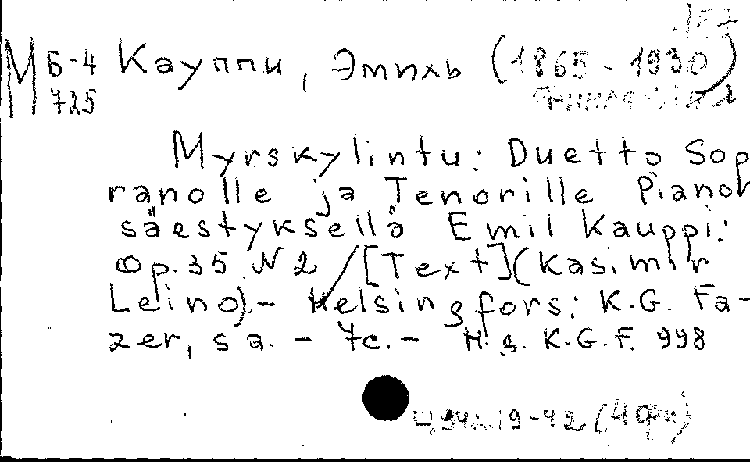 М Б-4 Кауппи, Эмиль (1865-1930)
725
Myrskylintu: Duetto Sop
ranolle ja Tenorille Pianon
säestyksellä Emil Kauppi:
Op. 35 N2 / [Text] (Kasimir
Leino). - Helsingfors: K.G. Fa-
zer, s a. - 7c. - Н. д. K.G.F. 998
19-42 (4